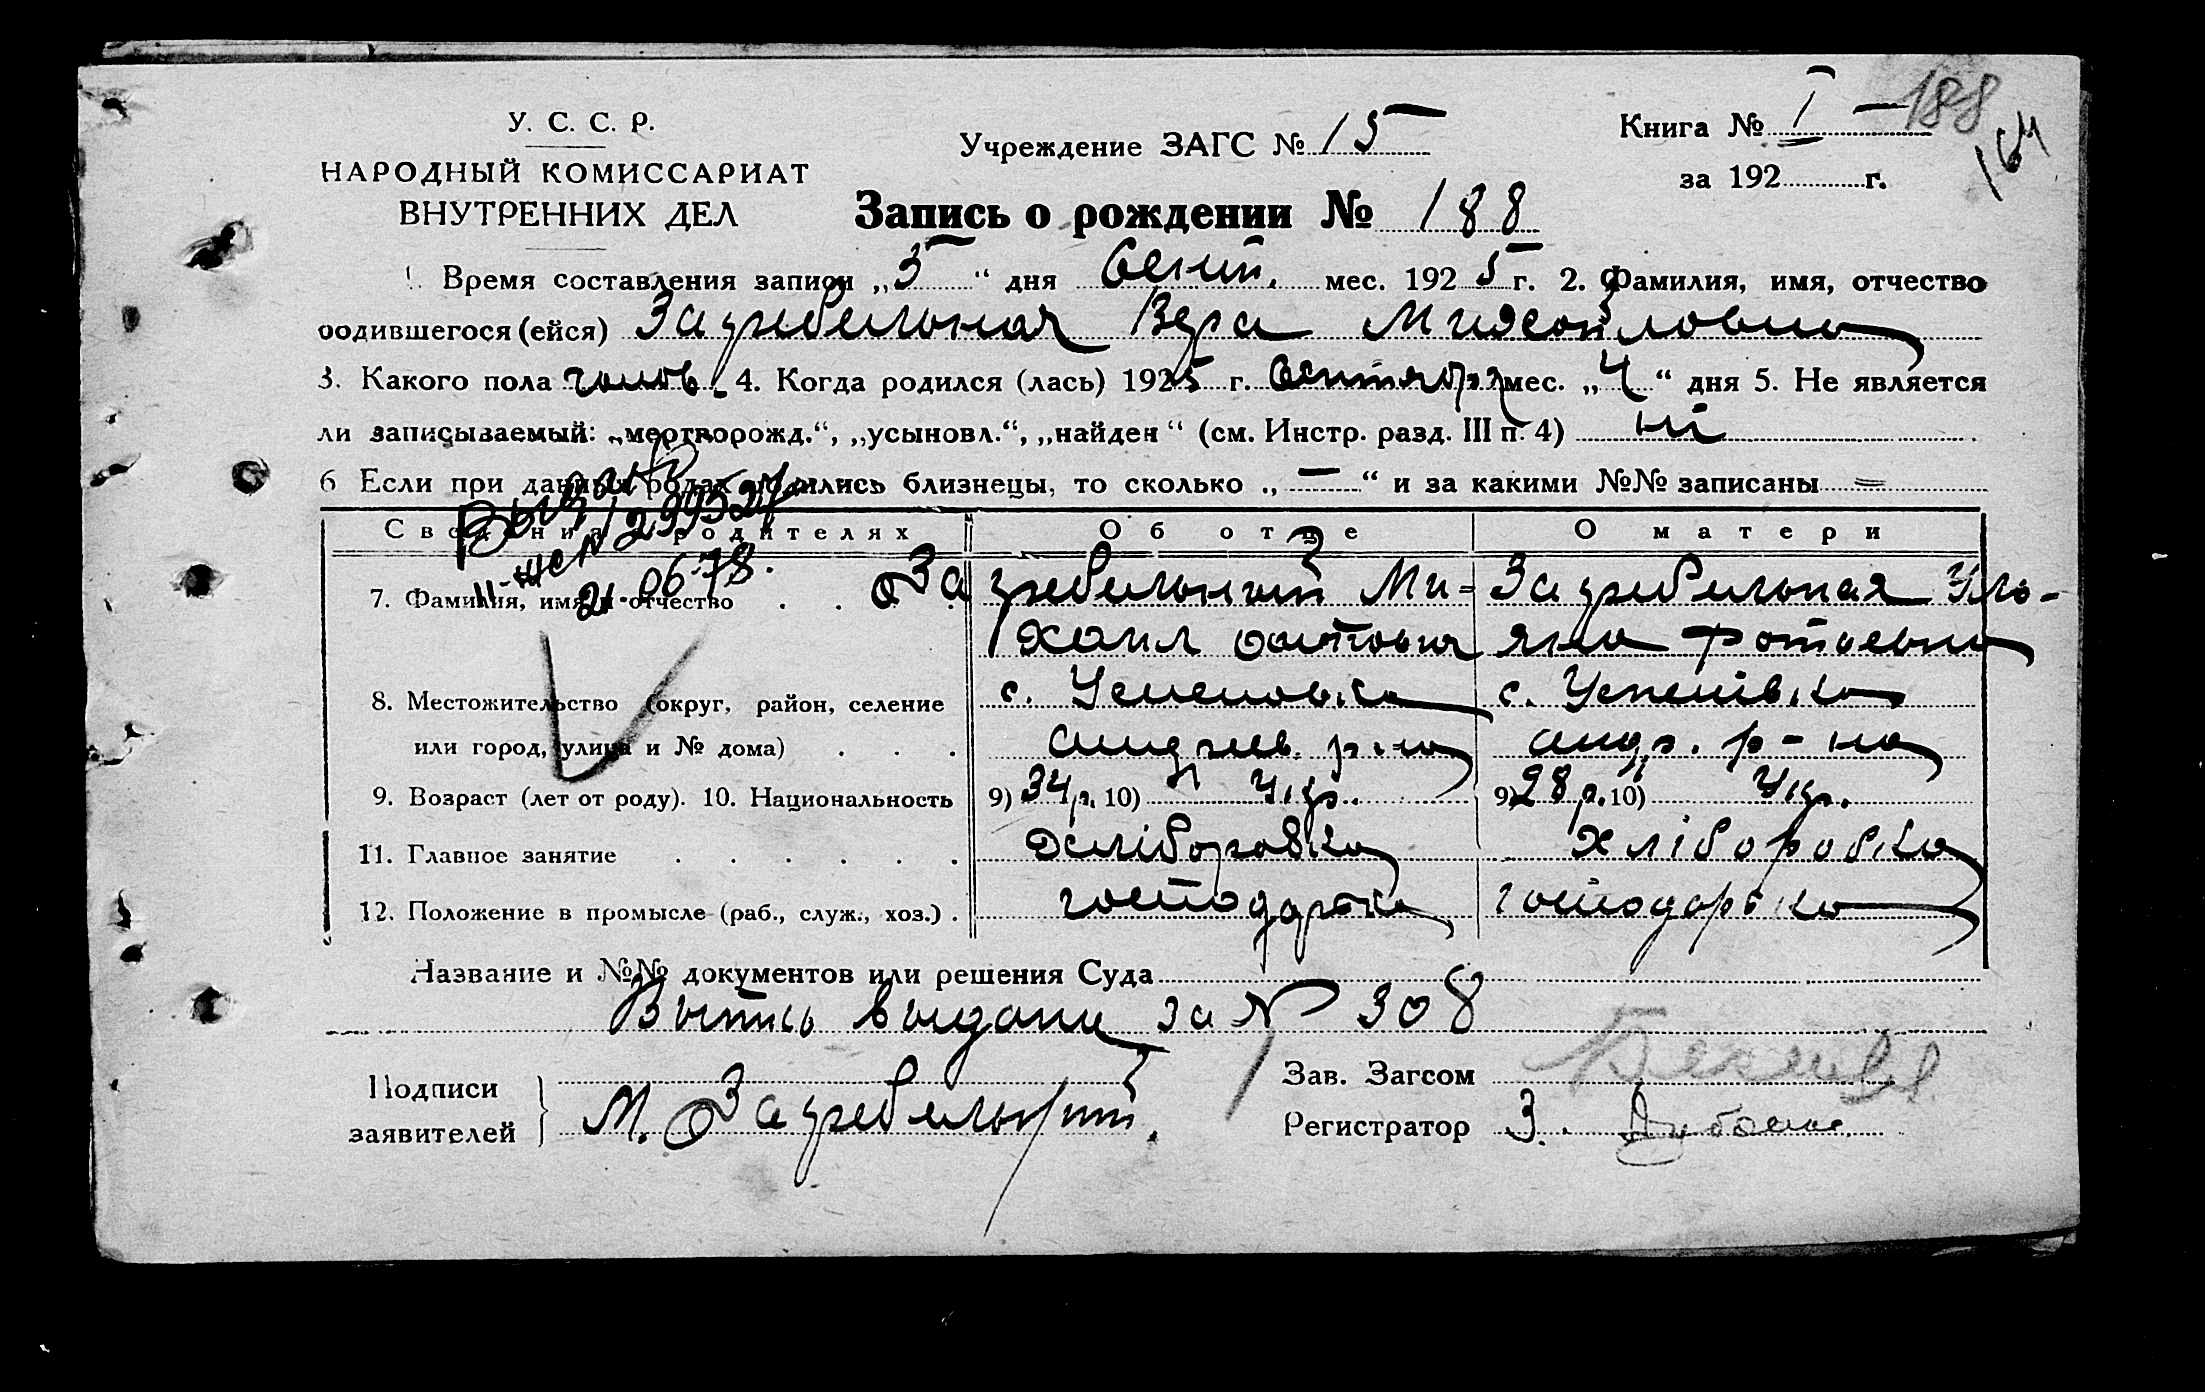 У. С. С. Р.
НАРОДНЫЙ КОМИССАРИАТ
ВНУТРЕННИХ ДЕЛ
Учреждение ЗАГС № 15
Книга № I – 188
164
за 192 г.
Запись о рождении № 188
1. Время составления записи „5“ дня Сент. мес. 1925 г. 2. Фамилия, имя, отчество
родившегося (ейся) Загребельная Вера Михайловна
3. Какого пола 4. Когда родился (лась) 1925 г. Сентября мес. „4“ дня 5. Не является
ли записываемый: „мертворожд.“, „усыновл.“, „найден“ (см. Инстр. разд. III п. 4) ні
6 Если при данных родах родились близнецы, то сколько „—“ и за какими №№ записаны =
Сведения о родителях Об отце О матери
299527
21.06.78.
7. Фамилия, имя и отчество Загребельный Ми- Загребельная Уль-
хаил яна Фотоевна
8. Местожительство (округ, район, селение с. Успеновка с. Успенівка
или город, улица и № дома) андреев. р-на андр. р-на
9. Возраст (лет от роду). 10. Национальность 9) 34 р. 10) Укр. 9) 28 р. 10) Укр.
11. Главное занятие хліборобка хліборобка
12. Положение в промысле (раб., служ., хоз.) господарька господарька
Название и №№ документов или решения Суда
Выпись выдана за № 308
Подписи
заявителей
М. Загребельный.
Зав. Загсом
Регистратор З.